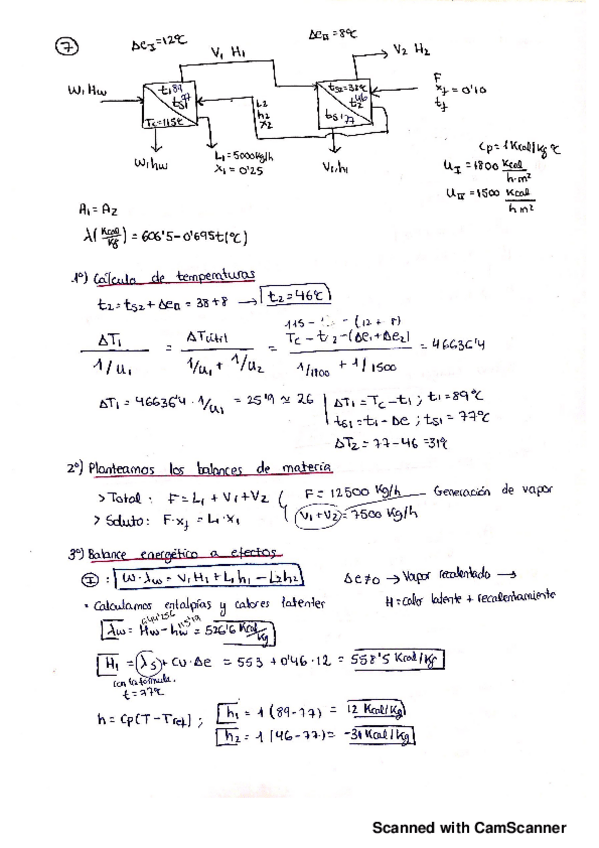 7
ΔeI = 12ºC
ΔeII = 8ºC
V1 H1
V2 H2
W1Hw
t1 89
ts1 77
Tc=115ºC
ts2=38ºC
t2 46
ts1 77
F
xf = 0'10
tf
L2
h2
x2
W1hw
L1 = 5000Kg/h
x1 = 0'25
V1,h1
Cp=1Kcal/Kg ºC
UI = 1800 Kcal/h·m²
UII = 1500 Kcal/h m²
A1 = A2
λ(Kcal/Kg) = 606'5 - 0'695t(ºC)
1º) Cálculo de temperaturas
t2 = ts2 + ΔeII = 38+8 → t2 = 46ºC
ΔT1 / 1/u1 = ΔTútil / 1/u1 + 1/u2 = Tc - ts2 - (Δe1+Δe2) / 1/1800 + 1/1500 = 46636'4
ΔT1 = 46636'4 · 1/u1 = 25'9 ≈ 26
ΔT1 = Tc - t1 ; t1 = 89ºC
ts1 = t1 - Δe ; ts1 = 77ºC
ΔT2 = 77-46 = 31ºC
2º) Planteamos los balances de materia
> Total : F = L1 + V1 + V2
F = 12500 Kg/h
Generación de vapor
> Soluto : F·xf = L1·x1
V1+V2 = 7500 Kg/h
3º) Balance energético a efectos
I : W·λw = V1H1 + L1h1 - L2h2
Δe≠0 → Vapor recalentado →
H = calor latente + recalentamiento
• Calculamos entalpías y calores latentes
λw = Hw - hw = 526'6 Kcal/Kg
H1 = λs + Cv·Δe = 553 + 0'46·12 = 558'5 Kcal/Kg
con la fórmula.
t = 77ºC
h = Cp(T - Tref) ; h1 = 1 (89-77) = 12 Kcal/Kg
h2 = 1 (46-77) = -31 Kcal/Kg
Scanned with CamScanner